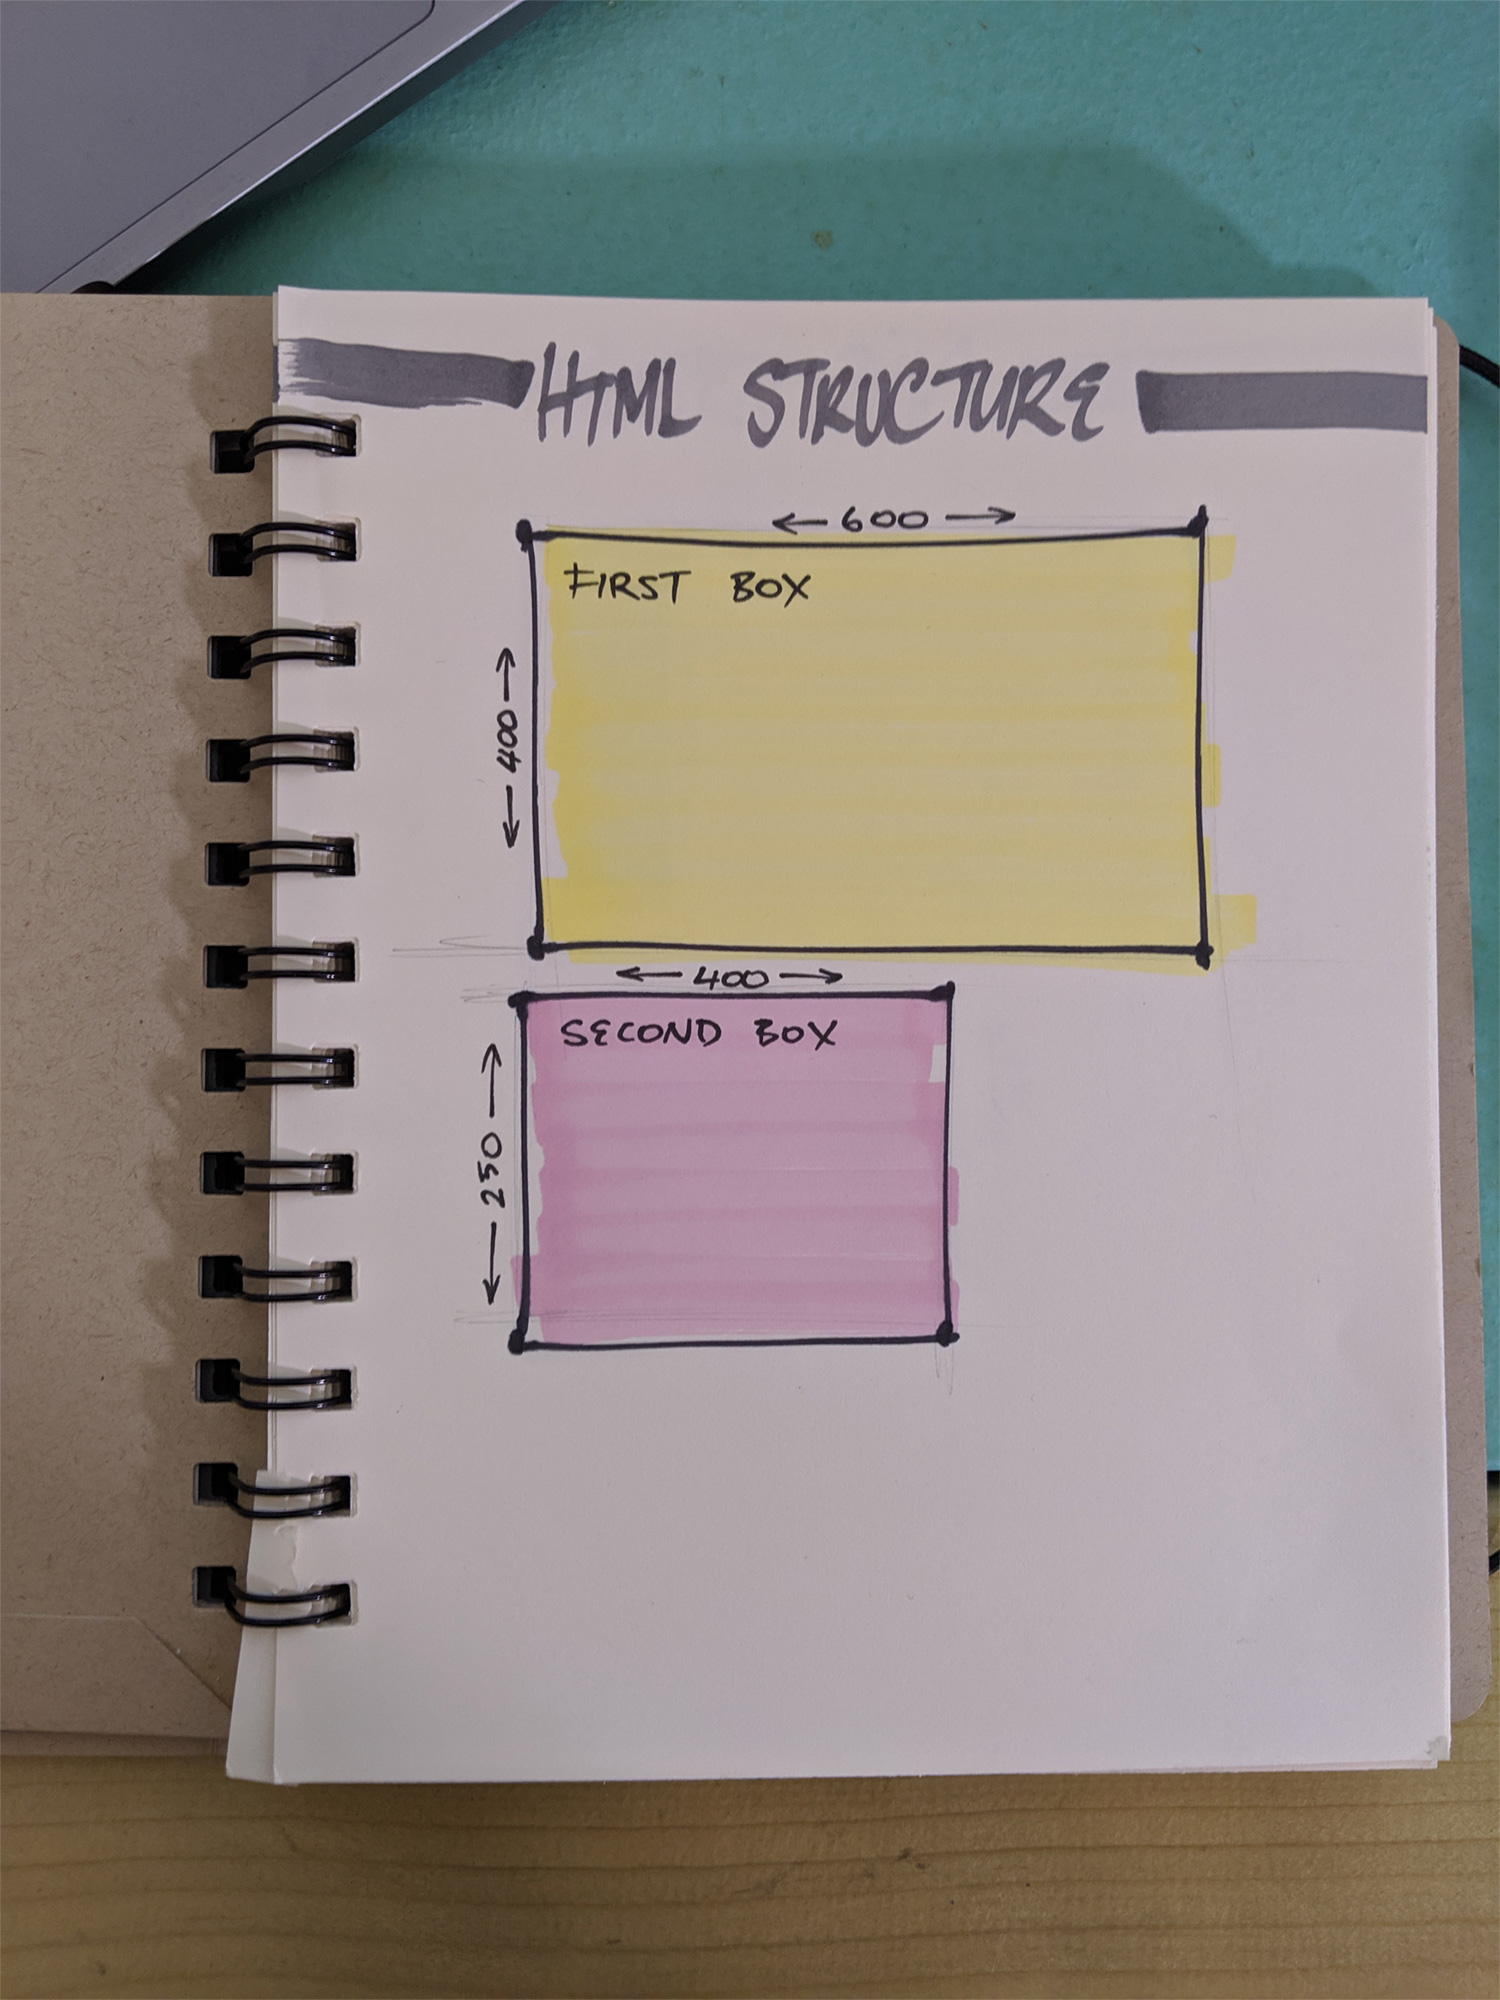 HTML STRUCTURE
← 600 →
FIRST BOX
← 400 →
← 400 →
SECOND BOX
← 250 →